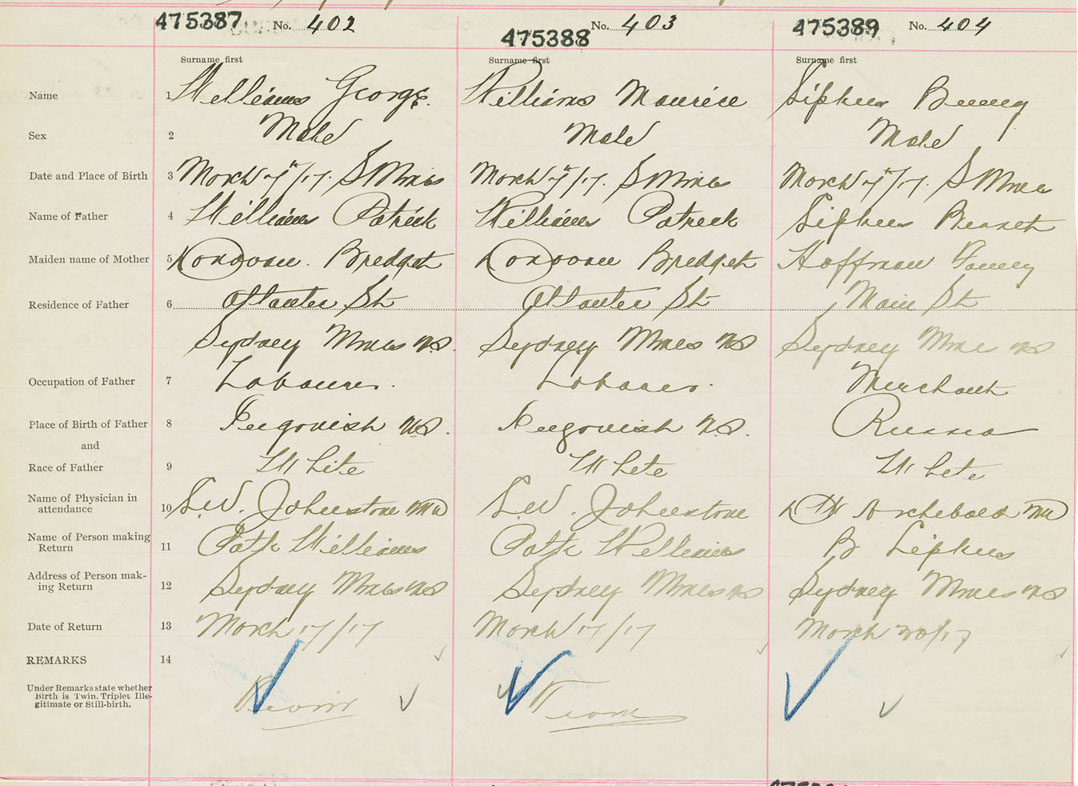 475387 No. 402
475388 No. 403
475389 No. 404
Surname first
Surname first
Surname first
Name 1 Williams George Williams Maurice Benny
Sex 2 Male Male Male
Date and Place of Birth 3 March 7/17. S Mines March 7/17. S Mines March 7/17. S Mines
Name of Father 4 Williams Patrick Williams Patrick
Maiden name of Mother 5 Donovan Bredget Donovan Bredget Hoffman Fanny
Residence of Father 6 Atlantic St Atlantic St Main St
Sydney Mines NS. Sydney Mines NS Sydney Mines NS
Occupation of Father 7 Labourer. Labourer. Merchant
Place of Birth of Father 8 NS. NS. Russia
and
Race of Father 9 White White White
Name of Physician in
attendance 10 Johnstone MD Johnstone Archibald MD
Name of Person making
Return 11 Patk Williams Patk Williams B
Address of Person mak-
ing Return 12 Sydney Mines NS Sydney Mines NS Sydney Mines NS
Date of Return 13 March 17/17 March 17/17 March 20/17
REMARKS 14
Under Remarks state whether
Birth is Twin. Triplet Ille-
gitimate or Still-birth.
Twin Twin